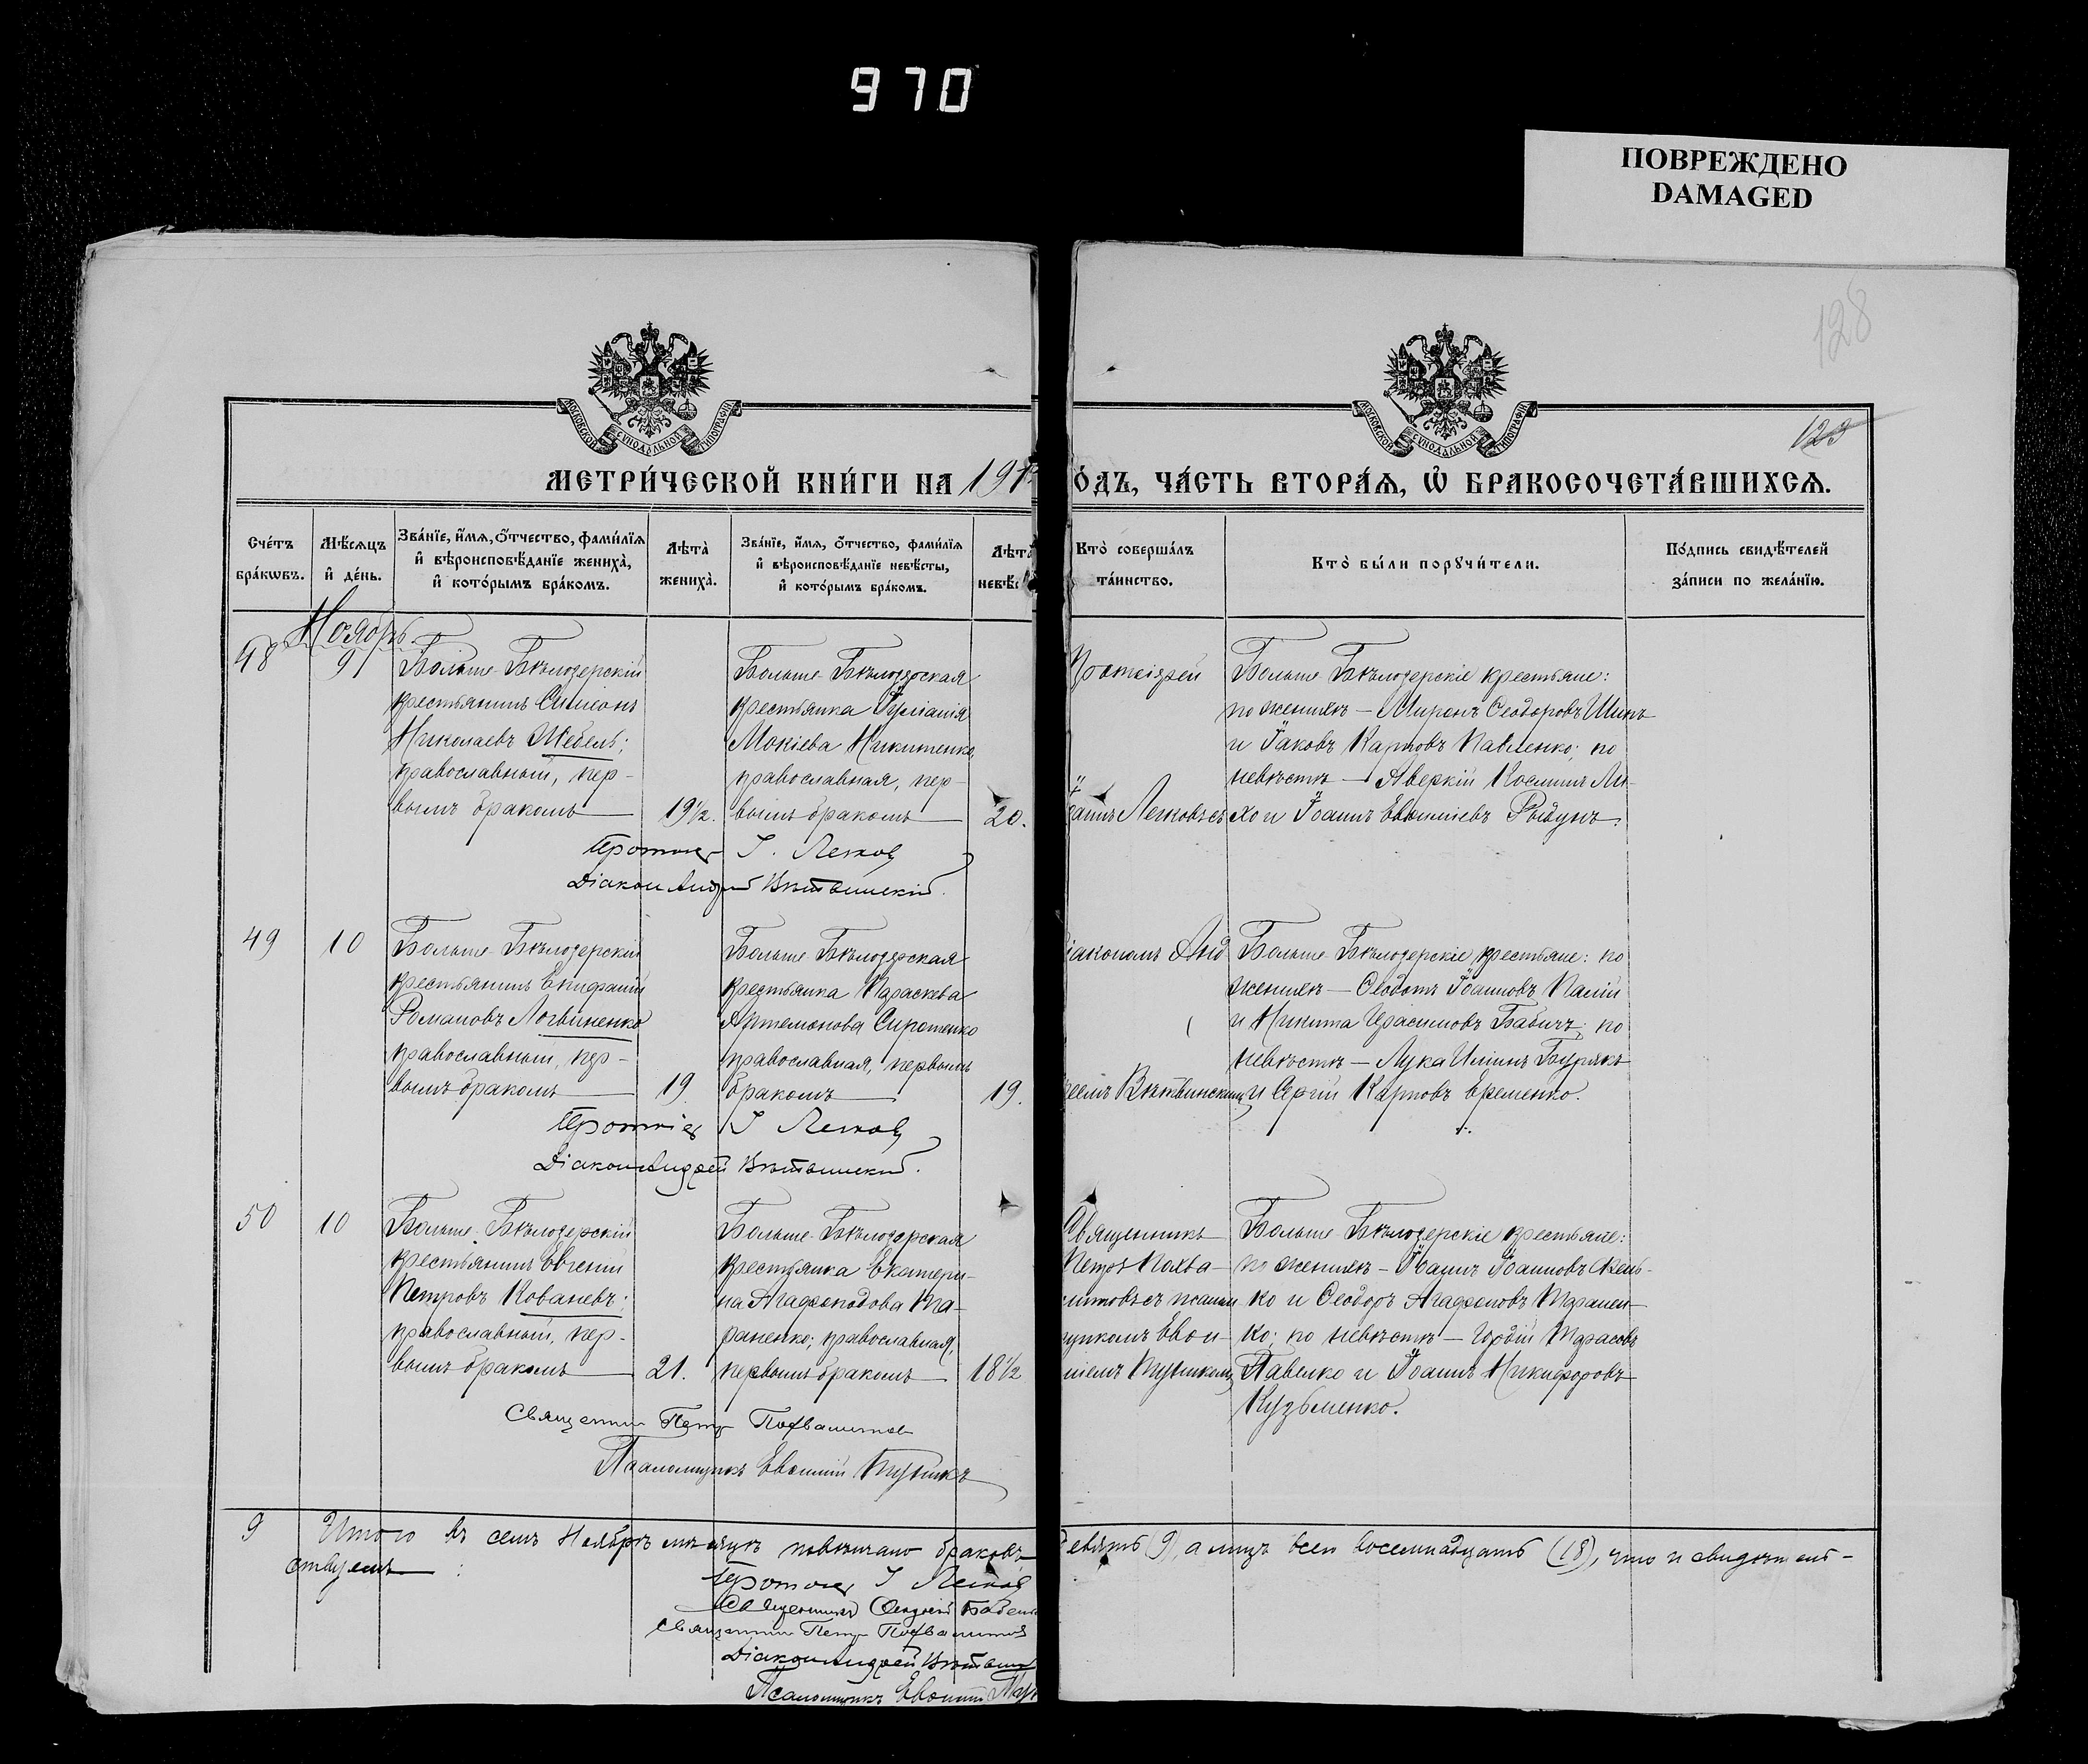 970
ПОВРЕЖДЕНО
DAMAGED
128
123
МОСКОВСКОЙ СѴНОДАЛЬНОЙ ТИПОГРАФІИ
МОСКОВСКОЙ СѴНОДАЛЬНОЙ ТИПОГРАФІИ
МЕТРИ́ЧЕСКОЙ КНИ́ГИ НА 191
О́ДЪ, ЧА́СТЬ ВТОРА́Ѧ, Ѡ҆ БРАКОСОЧЕТА́ВШИХСѦ.
Сче́тъ
бра́кѡвъ.
Мѣ́сѧцъ
и҆ де́нь.
Зва́нїе, и҆́мѧ, ѻ҆́тчество, фами́лїѧ
и҆ вѣроисповѣ́данїе жениха̀,
и҆ кото́рымъ бра́комъ.
Лѣта̀
жениха̀.
Зва́нїе, и҆́мѧ, ѻ҆́тчество, фами́лїѧ
и҆ вѣроисповѣ́данїе невѣ́сты,
и҆ кото́рымъ бра́комъ.
Лѣта
невѣ́с
Кто̀ соверша́лъ
та́инство.
Кто̀ бы́ли порꙋчи́тели.
По́дпись свидѣ́телей
за́писи по жела́нїю.
Ноябрь
48
9
Больше-Бѣлозерскій
крестьянинъ Симеонъ
Николаевъ Шебель;
православный, пер-
вымъ бракомъ
19½.
Больше-Бѣлозерская
крестьянка
Мокіева Никитенко,
православная, пер-
вымъ бракомъ
20.
Протоіерей
Легковъ съ
Больше-Бѣлозерскіе крестьяне:
по женихѣ — Миронъ Ѳеодоровъ
и Іаковъ Карповъ Павленко; по
невѣстѣ — Аверкій Космин Ли-
хо и Іоаннъ Евѳиміевъ
Протоіер І. Легков
Діакон Андрей Вѣтвинскій.
49
10
Больше-Бѣлозерскій
крестьянинъ Епифаній
Романовъ Логвиненко
православный, пер-
вымъ бракомъ
19.
Больше-Бѣлозерская
крестьянка Параскева
Артемонова Сиротенко
православная, первымъ
бракомъ
19.
іакономъ Анд
реемъ Вѣтвинскимъ
Больше-Бѣлозерскіе крестьяне: по
женихѣ — Ѳеодотъ Іоанновъ Палій
и Никита Герасимовъ Бабичъ; по
невѣстѣ — Лука Ильинъ Бурякъ
и Сергій Карповъ Еременко.
Протоіер І Легков
Діакон Андрей Вѣтвинскій.
50
10
Больше-Бѣлозерскій
крестьянинъ Евгеній
Петровъ Ковалевъ;
православный, пер-
вымъ бракомъ
21.
Больше-Бѣлозерская
крестьянка Екатери-
на Агафоподова Та-
раненко; православная,
первымъ бракомъ
18½
Священникъ
Петръ Похва-
литовъ съ псалом
щикомъ Евѳи-
міемъ
Больше-Бѣлозерскіе крестьяне:
по женихѣ — Іоаннъ Іоанновъ
ко и Ѳеодоръ Агафоновъ Таранен-
ко; по невѣстѣ — Гордій Тарасовъ
Павелко и Іоаннъ Никифоровъ
Кузьменко.
Священник Петр Похвалитов
Псаломщикъ Евѳимій
9
Итого въ семъ Ноябрѣ мѣсяцѣ повѣнчано браковъ
евять (9), а лицъ всеи восемнадцать (18), что и свидѣтель-
ствуемъ:
Протоіер І Легков
Священникъ
Священник Петр Похвалитов
Діакон Андрей Вѣтвин
Псаломщикъ Евѳимій